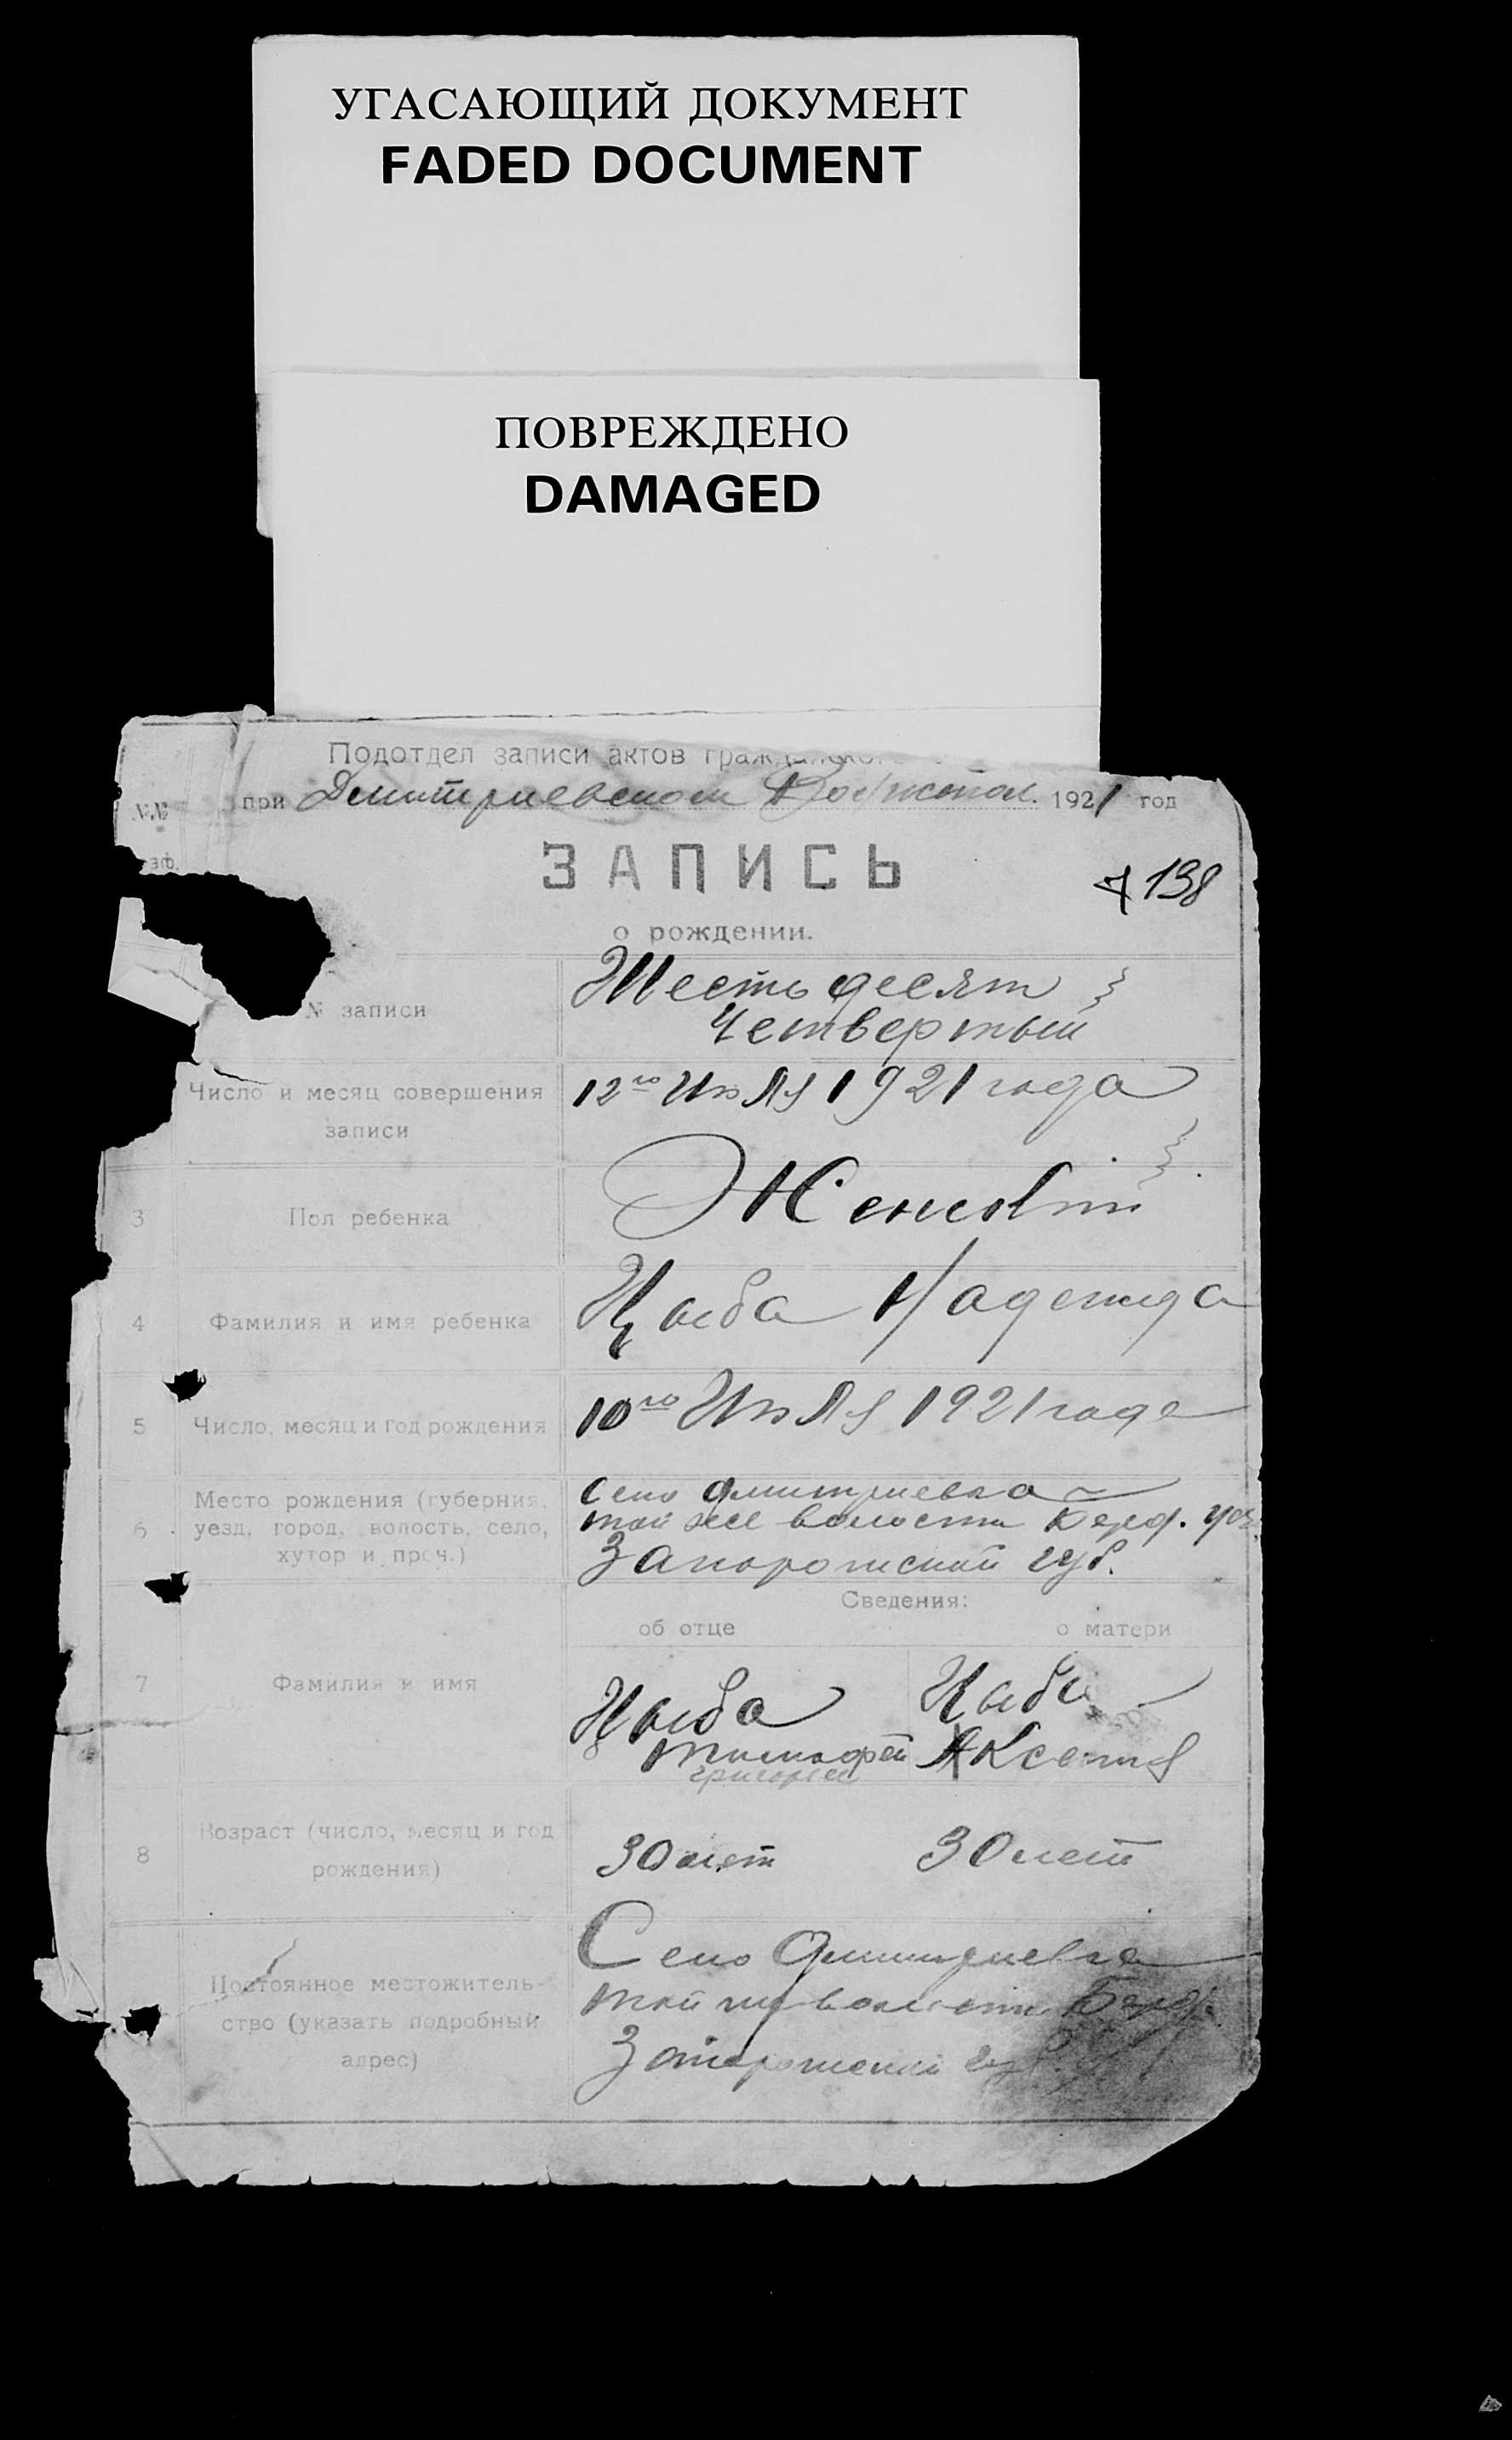 УГАСАЮЩИЙ ДОКУМЕНТ
FADED DOCUMENT
ПОВРЕЖДЕНО
DAMAGED
Подотдел записи актов
№№
при Дмитриевском 1921 год
ЗАПИСЬ
138
о рождении.
№ записи
Шестьдесят
Четвертый
Число и месяц совершения
записи
12го Июля 1921 года
3 Пол ребенка Женский
4 Фамилия и имя ребенка Цыба Надежда
5 Число, месяц и год рождения 10го Июля 1921 года
6 Место рождения (губерния,
уезд, город, волость, село,
хутор и проч.)
Село Дмитриевка
той же волости Берд. уез.
Запорожской губ.
Сведения:
об отце о матери
7 Фамилия и имя
Цыба Цыба
Тимофей Аксения
8 Возраст (число, месяц и год
рождения)
30 лет 30 лет
Постоянное местожитель-
ство (указать подробный
адрес)
Село Дмитриевка
той же волости Берд.
Запорожской губ.